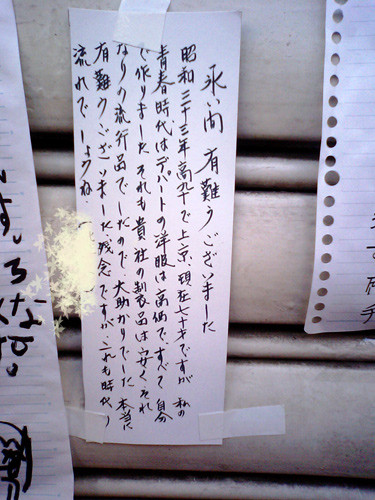 永い間 有難うございました
昭和三十三年高卆で上京、現在七十才ですが 私の
青春時代はデパートの洋服は高価で、すべて自分
で作りました それも貴社の製品は安く、それ
なりの流行品でしたので、大助かりでした 本当に
有難うございました、残念ですが、これも時代の
流れでしょうね、